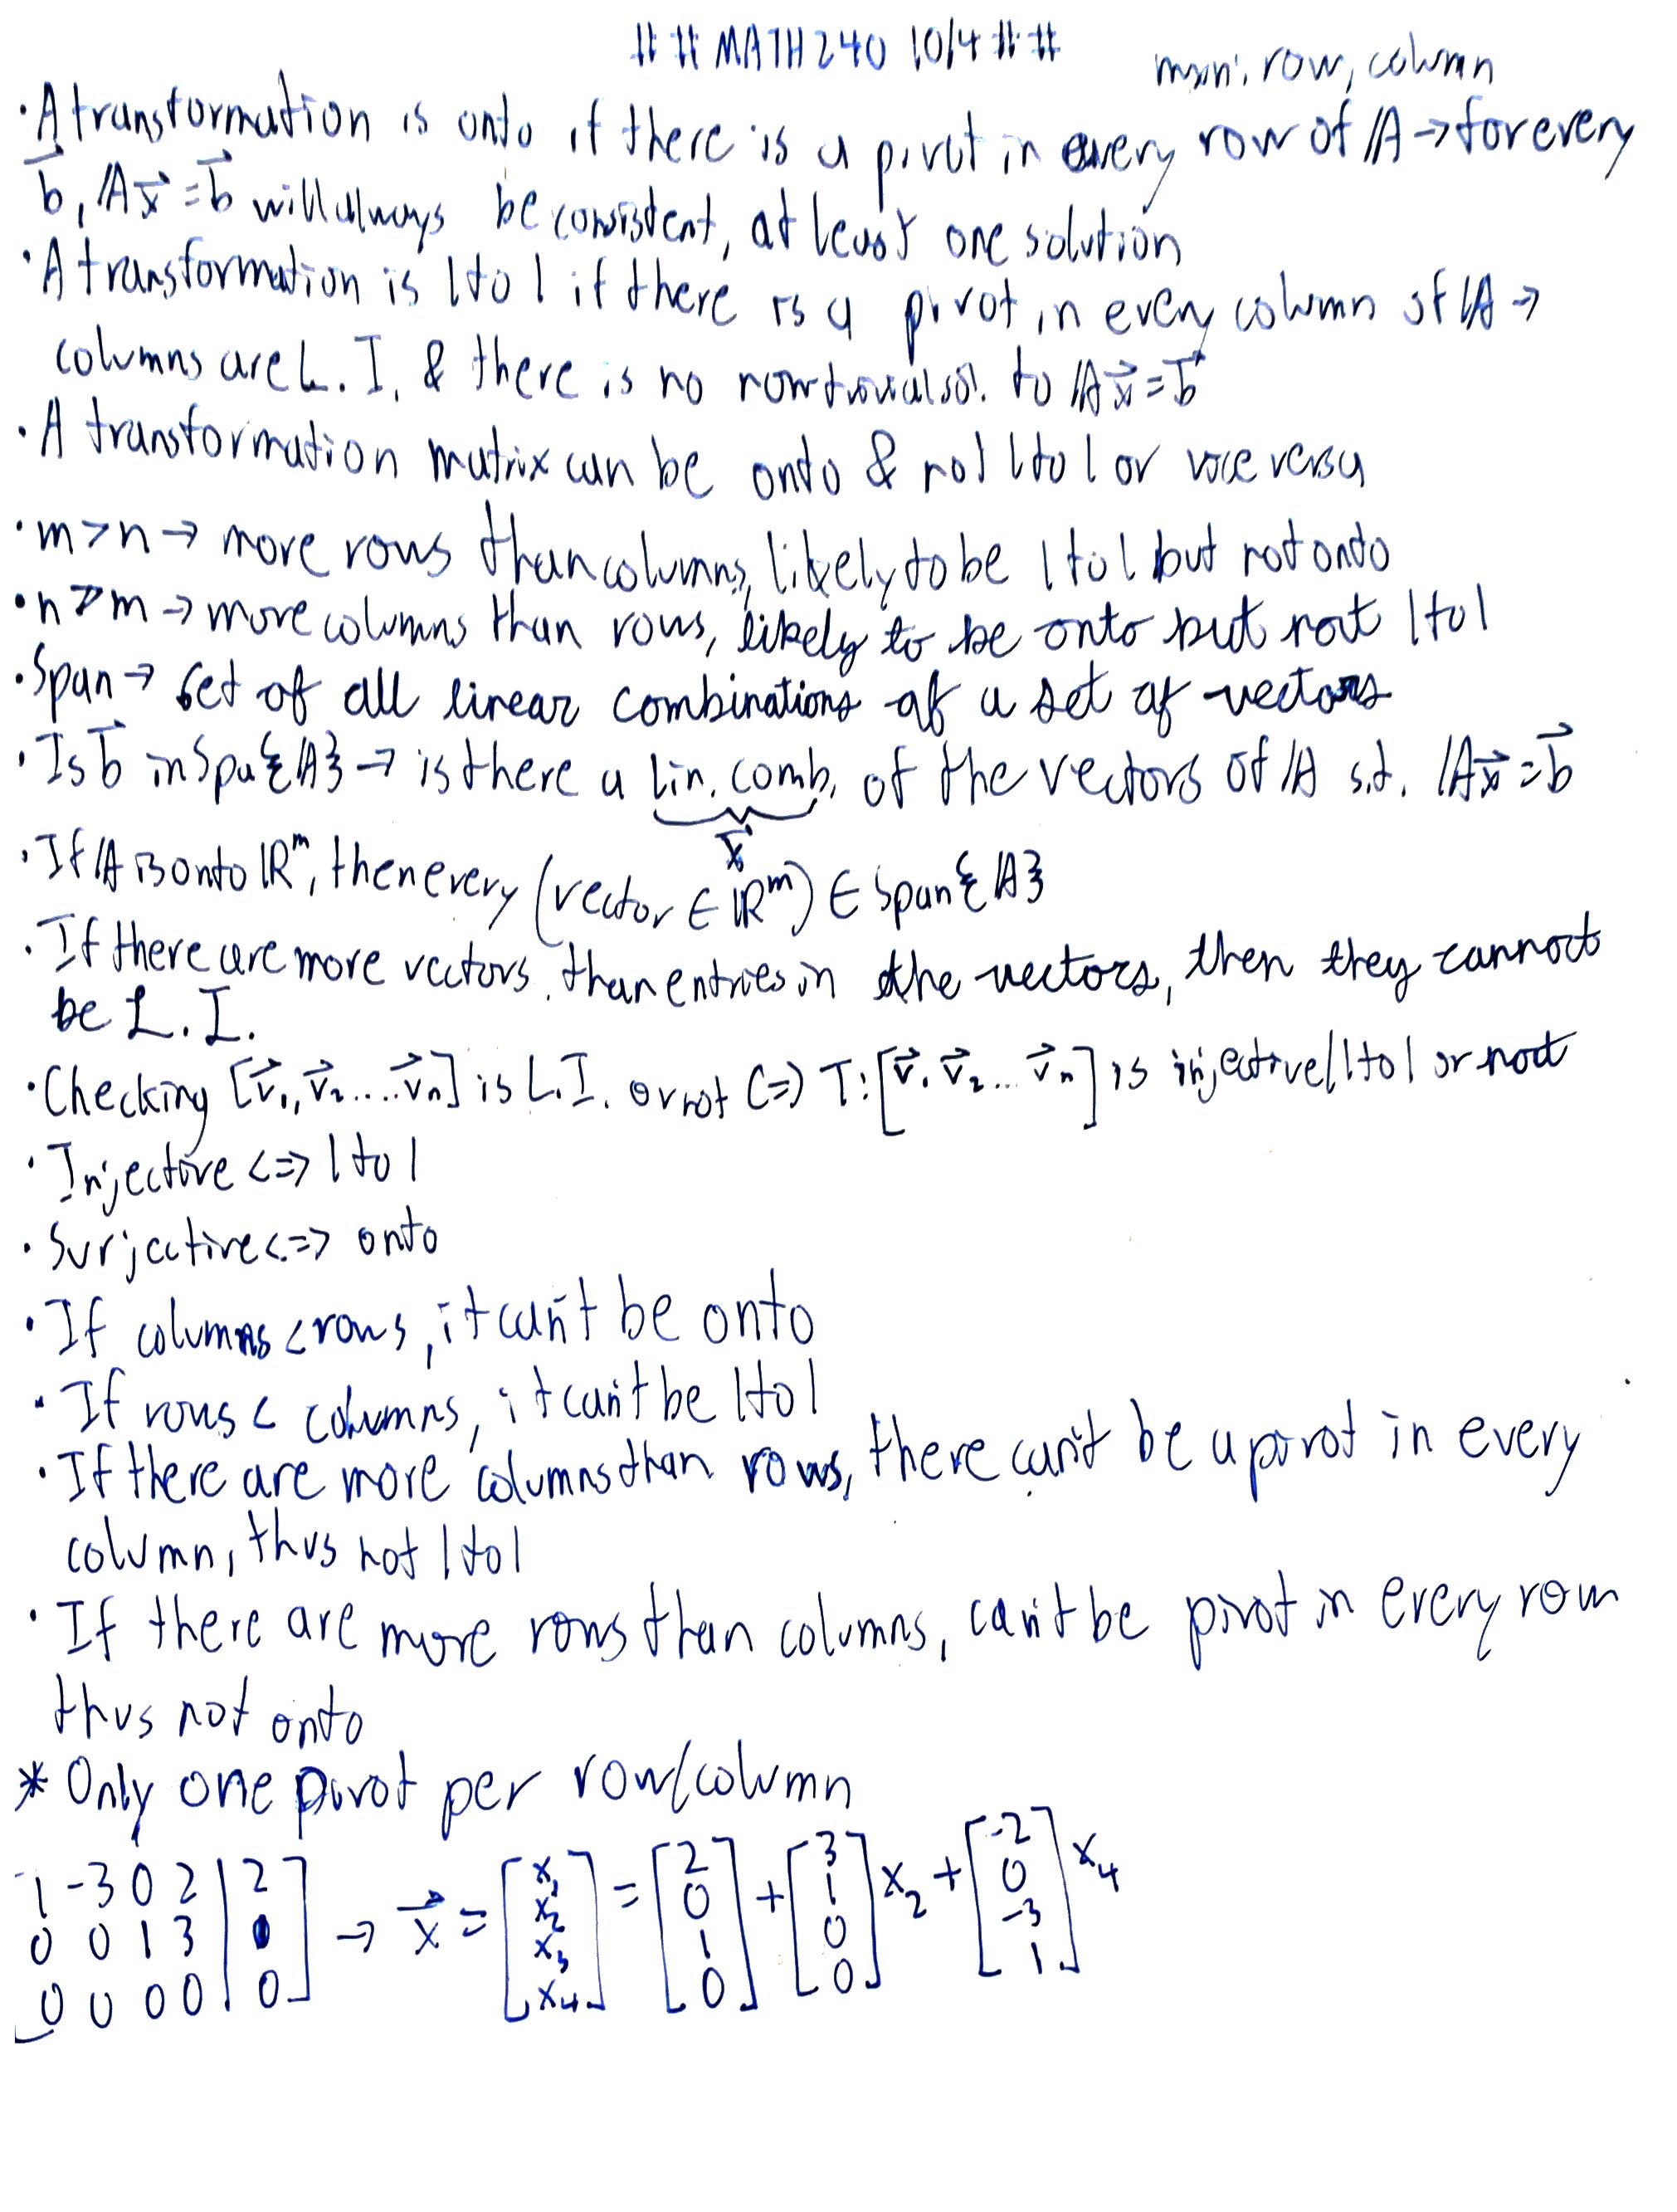 ## MATH240 10/4 ##
mxn: row, column
·A transformation is onto if there is a pivot in every row of A → for every
b⃗, Ax⃗ = b⃗ will always be consistent, at least one solution
·A transformation is 1 to 1 if there is a pivot in every column of A →
columns are L. I. & there is no nontrivial sol. to Ax⃗ = b⃗
·A transformation matrix can be onto & not 1 to 1 or vice versa
·m > n → more rows than columns, likely to be 1 to 1 but not onto
·n > m → more columns than rows, likely to be onto but not 1 to 1
·Span → set of all linear combinations of a set of vectors
·Is b⃗ in Spa{A} → is there a lin. comb. of the vectors of A s.t. Ax⃗ = b⃗
x⃗
·If A is onto ℝᵐ, then every (vector ∈ ℝᵐ) ∈ Span{A}
·If there are more vectors than entries in the vectors, then they cannot
be L. I.
·Checking [v⃗₁, v⃗₂....v⃗ₙ] is L.I. or not <=> T:[v⃗₁ v⃗₂... v⃗ₙ] is injective/1 to 1 or not
·Injective <=> 1 to 1
·Surjective <=> onto
·If columns < rows, it can't be onto
·If rows < columns, it can't be 1 to 1
·If there are more columns than rows, there can't be a pivot in every
column, thus not 1 to 1
·If there are more rows than columns, can't be pivot in every row
thus not onto
* Only one pivot per row/column
[1 -3 0 2 | 2]
[0 0 1 3 | 1] → x⃗ = [x₁ x₂ x₃ x₄] = [2 0 1 0] + [3 1 0 0] x₂ + [-2 0 -3 1] x₄
[0 0 0 0 | 0]